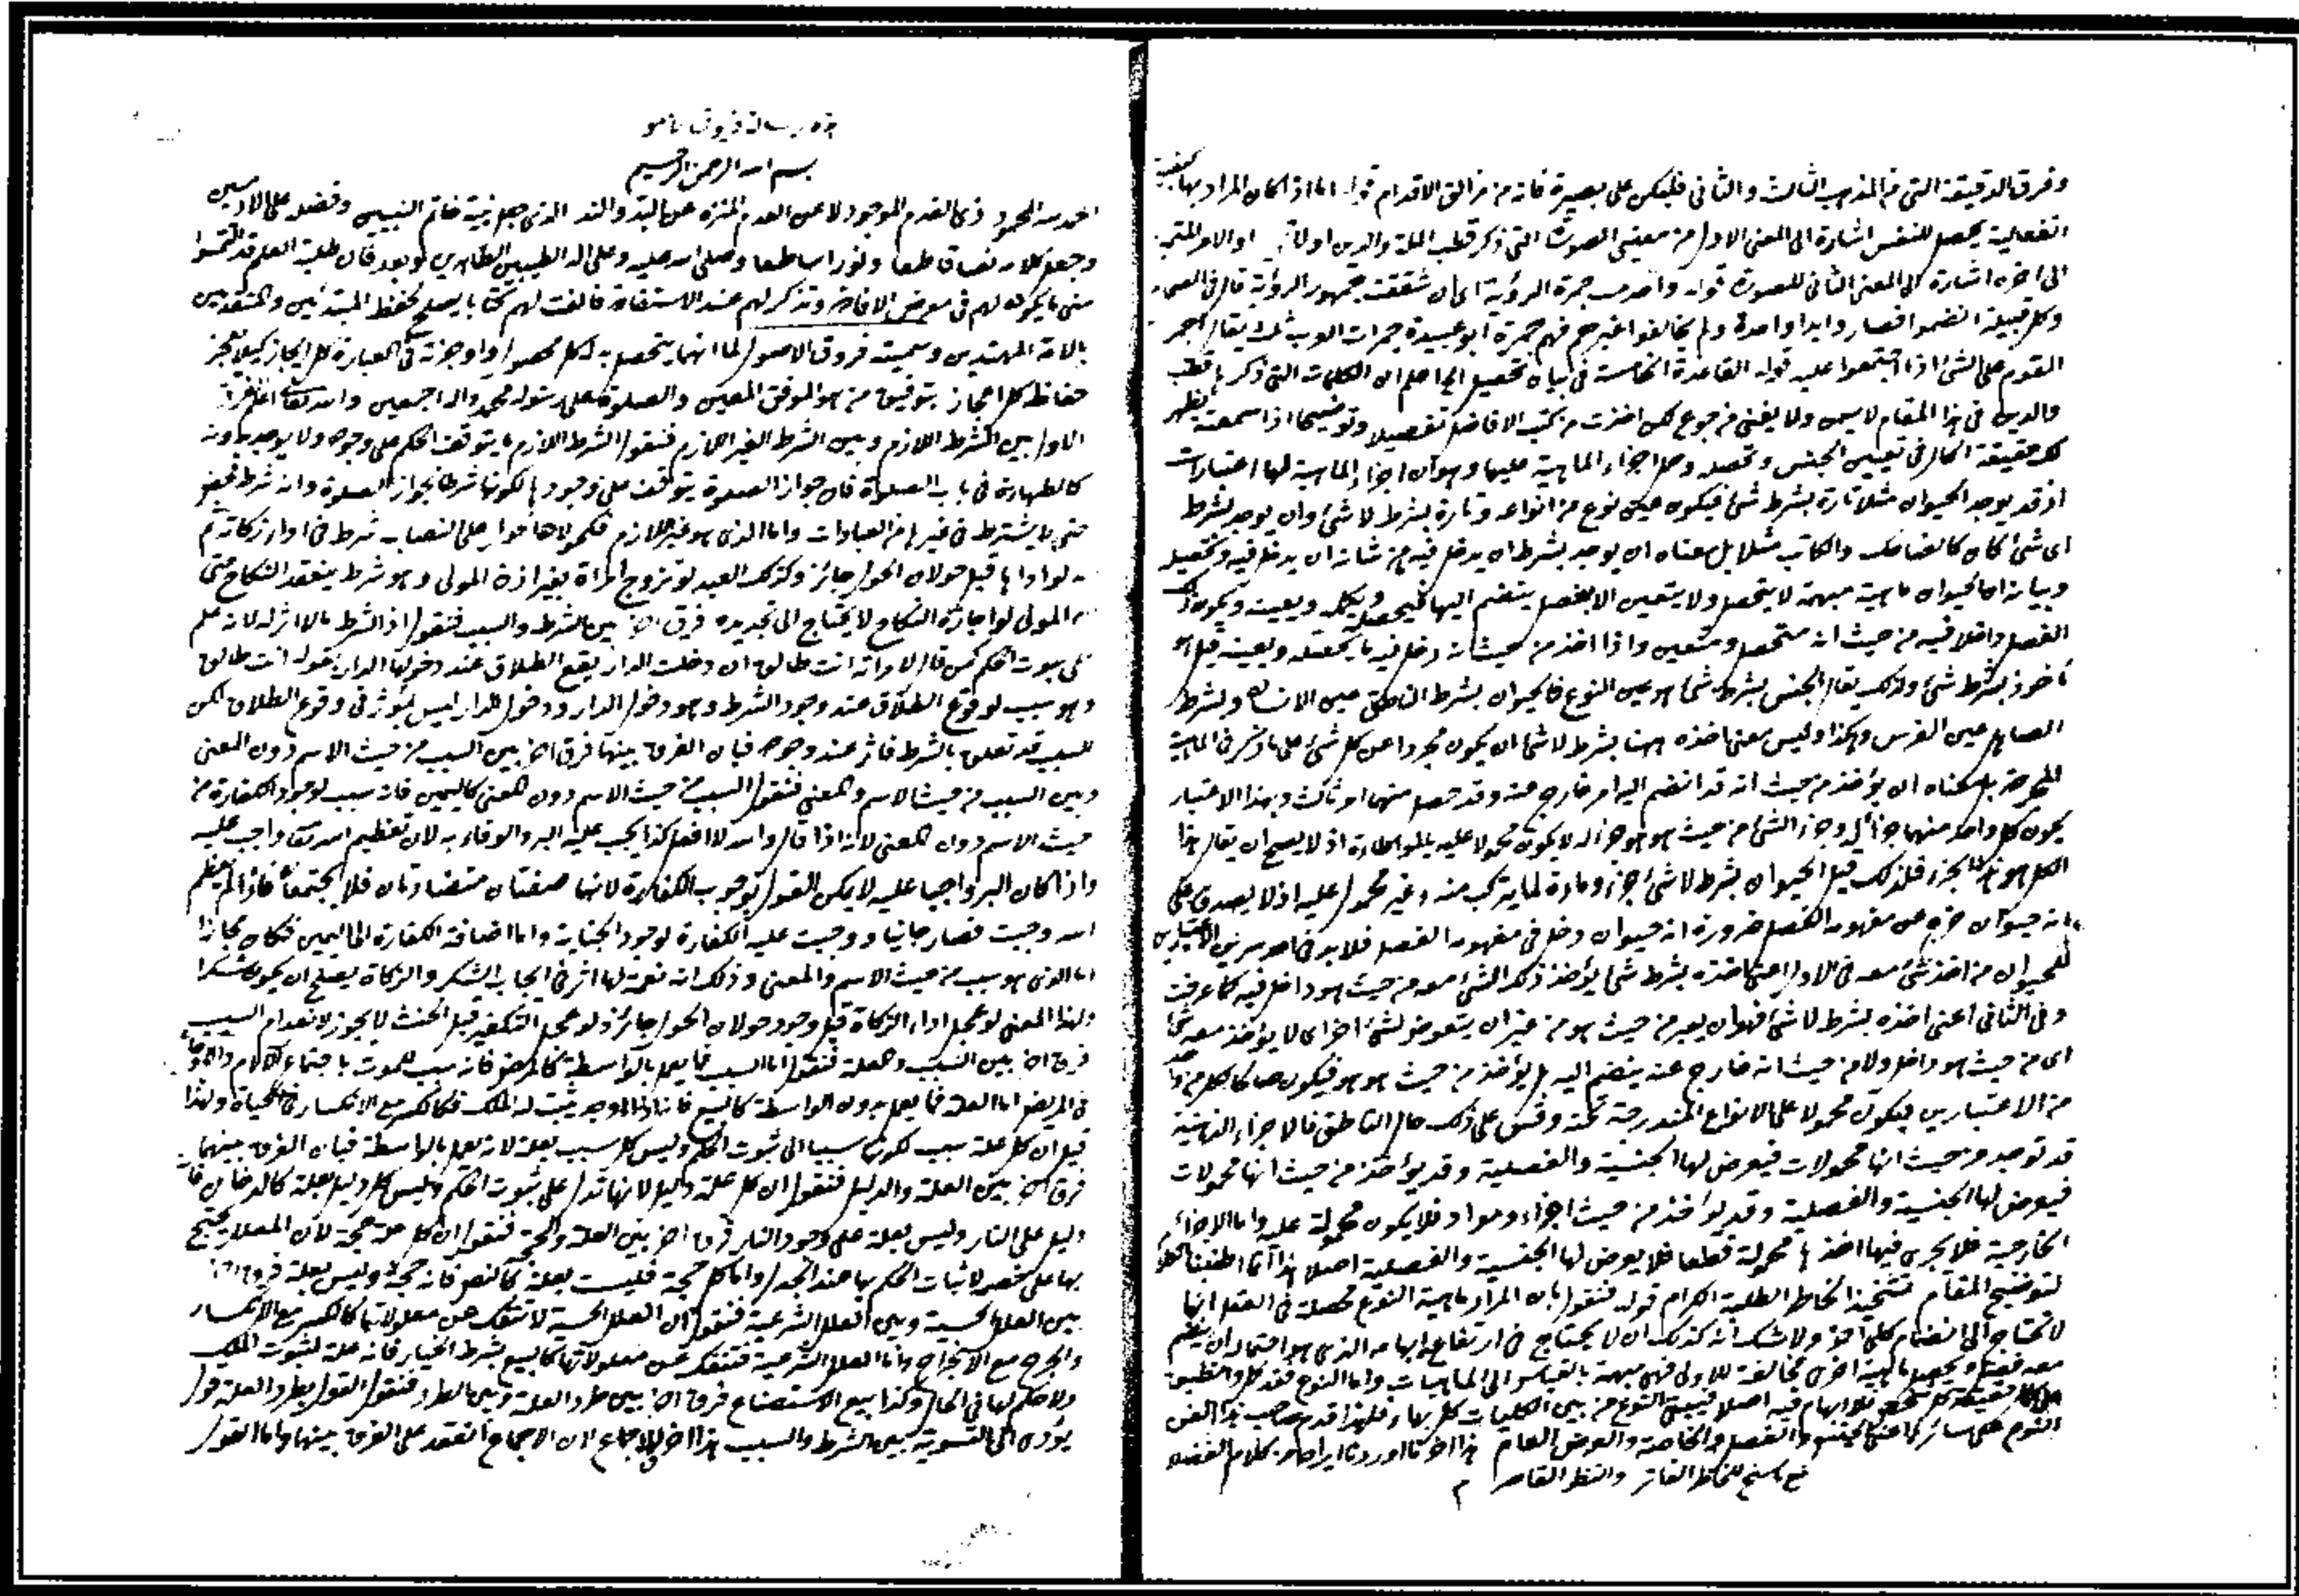 وفرق الدقيقة التي في المذهب الثالث والثاني فليكن على بصيرة فانه من مزالق الاقدام قوله اما اذا كان المراد بها كيفية
انفعالية يحصل للنفس اشارة الى المعنى الاول من معنيي الصورة التي ذكر قطب الملة والدين اولا او الامر المتميز
الى اخره اشارة الى المعنى الثاني للصورة قوله واحد من جمرة الرؤية اي ان شققت جمهور الرؤية قال في الصحاح
وكل قبيلة انضموا فصاروا يدا واحدة ولم يحالفوا غيرهم فهم جمرة ابو عبيدة جمرات العرب ثلث يقال اجمر
القوم على الشئ اذا اجتمعوا عليه قوله القاعدة الخامسة في بيان تحصيل الخ اعلم ان الكلمات التي ذكرها قطب
والدين في هذا المقام لايسمن ولا يغني من جوع لكن اخذت من كتب الافاضل تفصيلا وتوضيحا اذا سمعت يظهر
لك حقيقة الحال في تعيين الجنس وتحصله وحمل اجزاء الماهية عليها وهو ان اجزاء الماهية لها اعتبارات
اذ قد يوجد الحيوان مثلا تارة بشرط شئ فيكون عين نوع من انواعه وتارة بشرط لا شئ وان يوجد بشرط
اي شئ كان كالضاحك والكاتب مثلا بل معناه ان يوجد بشرط ان يدخل فيه من شانه ان يدخل فيه وتحصيل
وبيانه اما الحيوان ماهية مبهمة لا يتحصل ولا يتعين الا بفصل ينضم اليها فيحصله ويكمله ويعينه ويكون ذلك
الفصل داخلا فيه من حيث انه متحصل ومتعين واذا اخذ من حيث انه دخل فيه ما يحصله ويعينه قيل هو
مأخوذ بشرط شئ ولذلك يقال الجنس بشرط شئ هو عين النوع فالحيوان بشرط الناطق عين الانسان وبشرط
الصاهل عين الفرس وهكذا وليس معنى اخذه ههنا بشرط لا شئ ان يكون مجردا عن كل شئ على ما ذكر في الماهية
المجردة بل معناه ان يؤخذ من حيث انه قد انضم اليه امر خارج عنه وقد حصل منهما امر ثالث وبهذا الاعتبار
يكون كل واحد منهما جزأ له وجزء الشئ من حيث هو هو جزء له لا يكون محمولا عليه بالمواطاة اذ لا يصح ان يقال هذا
الكل هو هذا الجزء فلذلك قيل الحيوان بشرط لا شئ جزء ومادة لما يتركب منه وغير محمول عليه اذ لا يصدق على
انه حيوان خرج عن مفهوم الفصل ضرورة انه حيوان دخل في مفهوم الفصل فلا بد في الاعتبارين
للحيوان من اخذ شئ معه في الاول اعني اخذه بشرط شئ يؤخذ ذلك الشئ معه من حيث هو داخل فيه كما عرفت
وفي الثاني اعني اخذه بشرط لا شئ فهو ان يعبر من حيث هو من غير ان يتعرض لشئ اخر اي لا يؤخذ معه شئ
اي من حيث هو داخل ولا من حيث انه خارج عنه ينضم اليه بل يؤخذ من حيث هو هو فيكون صالحا لكل من
من الاعتبارين فيكون محمولا على الانواع المندرجة تحته وقس على ذلك حال الناطق فالاجزاء الذهنية
قد توجد من حيث انها محمولات فيعرض لها الجنسية والفصلية وقد يؤخذ من حيث انها محمولات
فيعرض لها الجنسية والفصلية وقد يؤخذ من حيث اجزاء ومواد فلا يكون محمولة عليه واما الاجزاء
الخارجية فلا يجري فيها اخذها محمولة قطعا فلا يعرض لها الجنسية والفصلية اصلا هذا انما اطنبنا الكلام
لتوضيح المقام وتشحيذ الخاطر الطلبة الكرام قوله فنقول بان المراد ماهية النوع محصلة في العقل انها
لا تحتاج الى انضمام كلي اخر ولا شك انه كذلك ان لا يحتاج في ارتفاع ابهامه الذي هو احتماله ان ينضم
معه فصل ويحصل ماهية اخرى مخالفة للاولى فهي مبهمة بالقياس الى الماهيات واما النوع فقد كمل وانطبق
على حقيقة كل شخص فلا ابهام فيه اصلا فيبقى النوع من بين الكليات كل بهاء فلهذا قدم صاحب هذا الفن
النوع على سائر اعني الجنس والفصل والخاصة والعرض العام هذا اخر ما اوردنا ايراده من كلام الفضلاء
مع ما سنح للخاطر الفاتر والنظر القاصر م
هذه رسالة فروق
بسم الله الرحمن الرحيم
الحمد لله المحمود ذي القدم الموجود لا عن العدم المنزه عن البد والند الذي جعل نبيه خاتم النبيين وفضله على الادميين
وجعل كلامه نصا قاطعا ونورا ساطعا وصلى الله عليه وعلى اله الطيبين الطاهرين وبعد فان طلبة العلم قد التمسوا
مني ما يكون لهم في معرض الافاضة وتذكر لهم عند الاستفادة فالفت لهم كتابا يصلح لحفظ المبتدئين والمتقدمين
بالائمة المهتدين وسميته فروق الاصول لما انها يتحصل به لكل محصول واوجزته في العبارة كل ايجاز كيلا يعجز
حفاظه كل اعجاز بتوفيق من هو الموفق المعين والصلوة على رسوله محمد واله اجمعين والله تعالى اعلم فرق
الاول بين الشرط اللازم وبين الشرط الغير اللازم فنقول الشرط اللازم ما يتوقف الحكم على وجوده ولا يوجد بدونه
كالطهارة في باب الصلوة فان جواز الصلوة يتوقف على وجودها لكونها شرطا لجواز الصلوة وانه شرط محض
حتى لا يشترط في غيرها من العبادات واما الذي هو غير اللازم فكحولان الحول على النصاب شرط في اداء الزكاة ثم
لو اداها قبل حولان الحول جائز وكذلك العبد لو تزوج امراة بغير اذن المولى وهو شرط ينعقد النكاح حتى
ان المولى لو اجازه النكاح لا يحتاج الى تجديده فرق اخر بين الشرط والسبب فنقول اذ الشرط ما لا اثر له لانه علم
على ثبوت الحكم كمن قال لامراته انت طالق ان دخلت الدار يقع الطلاق عند دخولها الدار بقوله انت طالق
وهو سبب لوقوع الطلاق عند وجود الشرط وهو دخول الدار ودخول الدار ليس بمؤثر في وقوع الطلاق لكن
السبب قد تعلق بالشرط فاثر عند وجوده فبان الفرق بينهما فرق اخر بين السبب من حيث الاسم دون المعنى
وبين السبب من حيث الاسم والمعنى فنقول السبب من حيث الاسم دون المعنى كاليمين فانه سبب لوجود الكفارة من
حيث الاسم دون المعنى لانه اذا قال والله لا افعل كذا يجب عليه البر والوفاء به لان تعظيم الله تعالى واجب عليه
واذا كان البر واجبا عليه لا يمكن القول بوجوب الكفارة لانها صفتان متضادتان فلا يجتمعان فاذا لم يعظم
الله وحنث فصار جانيا ووجبت عليه الكفارة لوجود الجناية واما اضافة الكفارة الى اليمين فكان مجازا
اما الذي هو سبب من حيث الاسم والمعنى وذلك انه نعمة لها اثر في ايجاب الشكر والزكاة يصلح ان يكون شكرا
ولهذا المعنى لو عجل اداء الزكاة قبل وجود حولان الحول جائز ولو عجل التكفير قبل الحنث لا يجوز لانعدام السبب
فرق اخر بين السبب والعلة فنقول اما السبب فما يعمل بالواسطة كالمرض فانه سبب للموت باجتماع الالام والاوجاع
في المريض اما العلة فما يعمل بدون الواسطة كالبيع فانه اذا وجد يثبت له الملك فكالكسر مع الانكسار في الحياة ولهذا
قيل ان كل علة سبب لكونها سببا الى ثبوت الحكم وليس كل سبب بعلة لانه يعمل بالواسطة فبان الفرق بينهما
فرق اخر بين العلة والدليل فنقول ان كل علة دليل لانها تدل على ثبوت الحكم وليس كل دليل بعلة كالدخان فانه
دليل على النار وليس بعلة على وجود النار فرق اخر بين العلة والحجة فنقول ان كل علة حجة لان المعلل يحتج
بها على خصمه لاثبات الحكم بها عند الجدل واما كل حجة فليست بعلة كالنص فانه حجة وليس بعلة فرق اخر
بين العلل الحسية وبين العلل الشرعية فنقول ان العلل الحسية لا تنفك عن معلولاتها كالكسر مع الانكسار
والجرح مع الانجراح واما العلل الشرعية فتنفك عن معلولاتها كالبيع بشرط الخيار فانه علة لثبوت الملك
ولا حكم لها في الحال وكذا بيع الاستصناع فرق اخر بين طرد العلة وبين الطرد فنقول القول بطرد العلة قول
يؤدي الى التسوية بين الشرط والسبب هذا خرق للاجماع لان الاجماع انعقد على الفرق بينهما واما القول